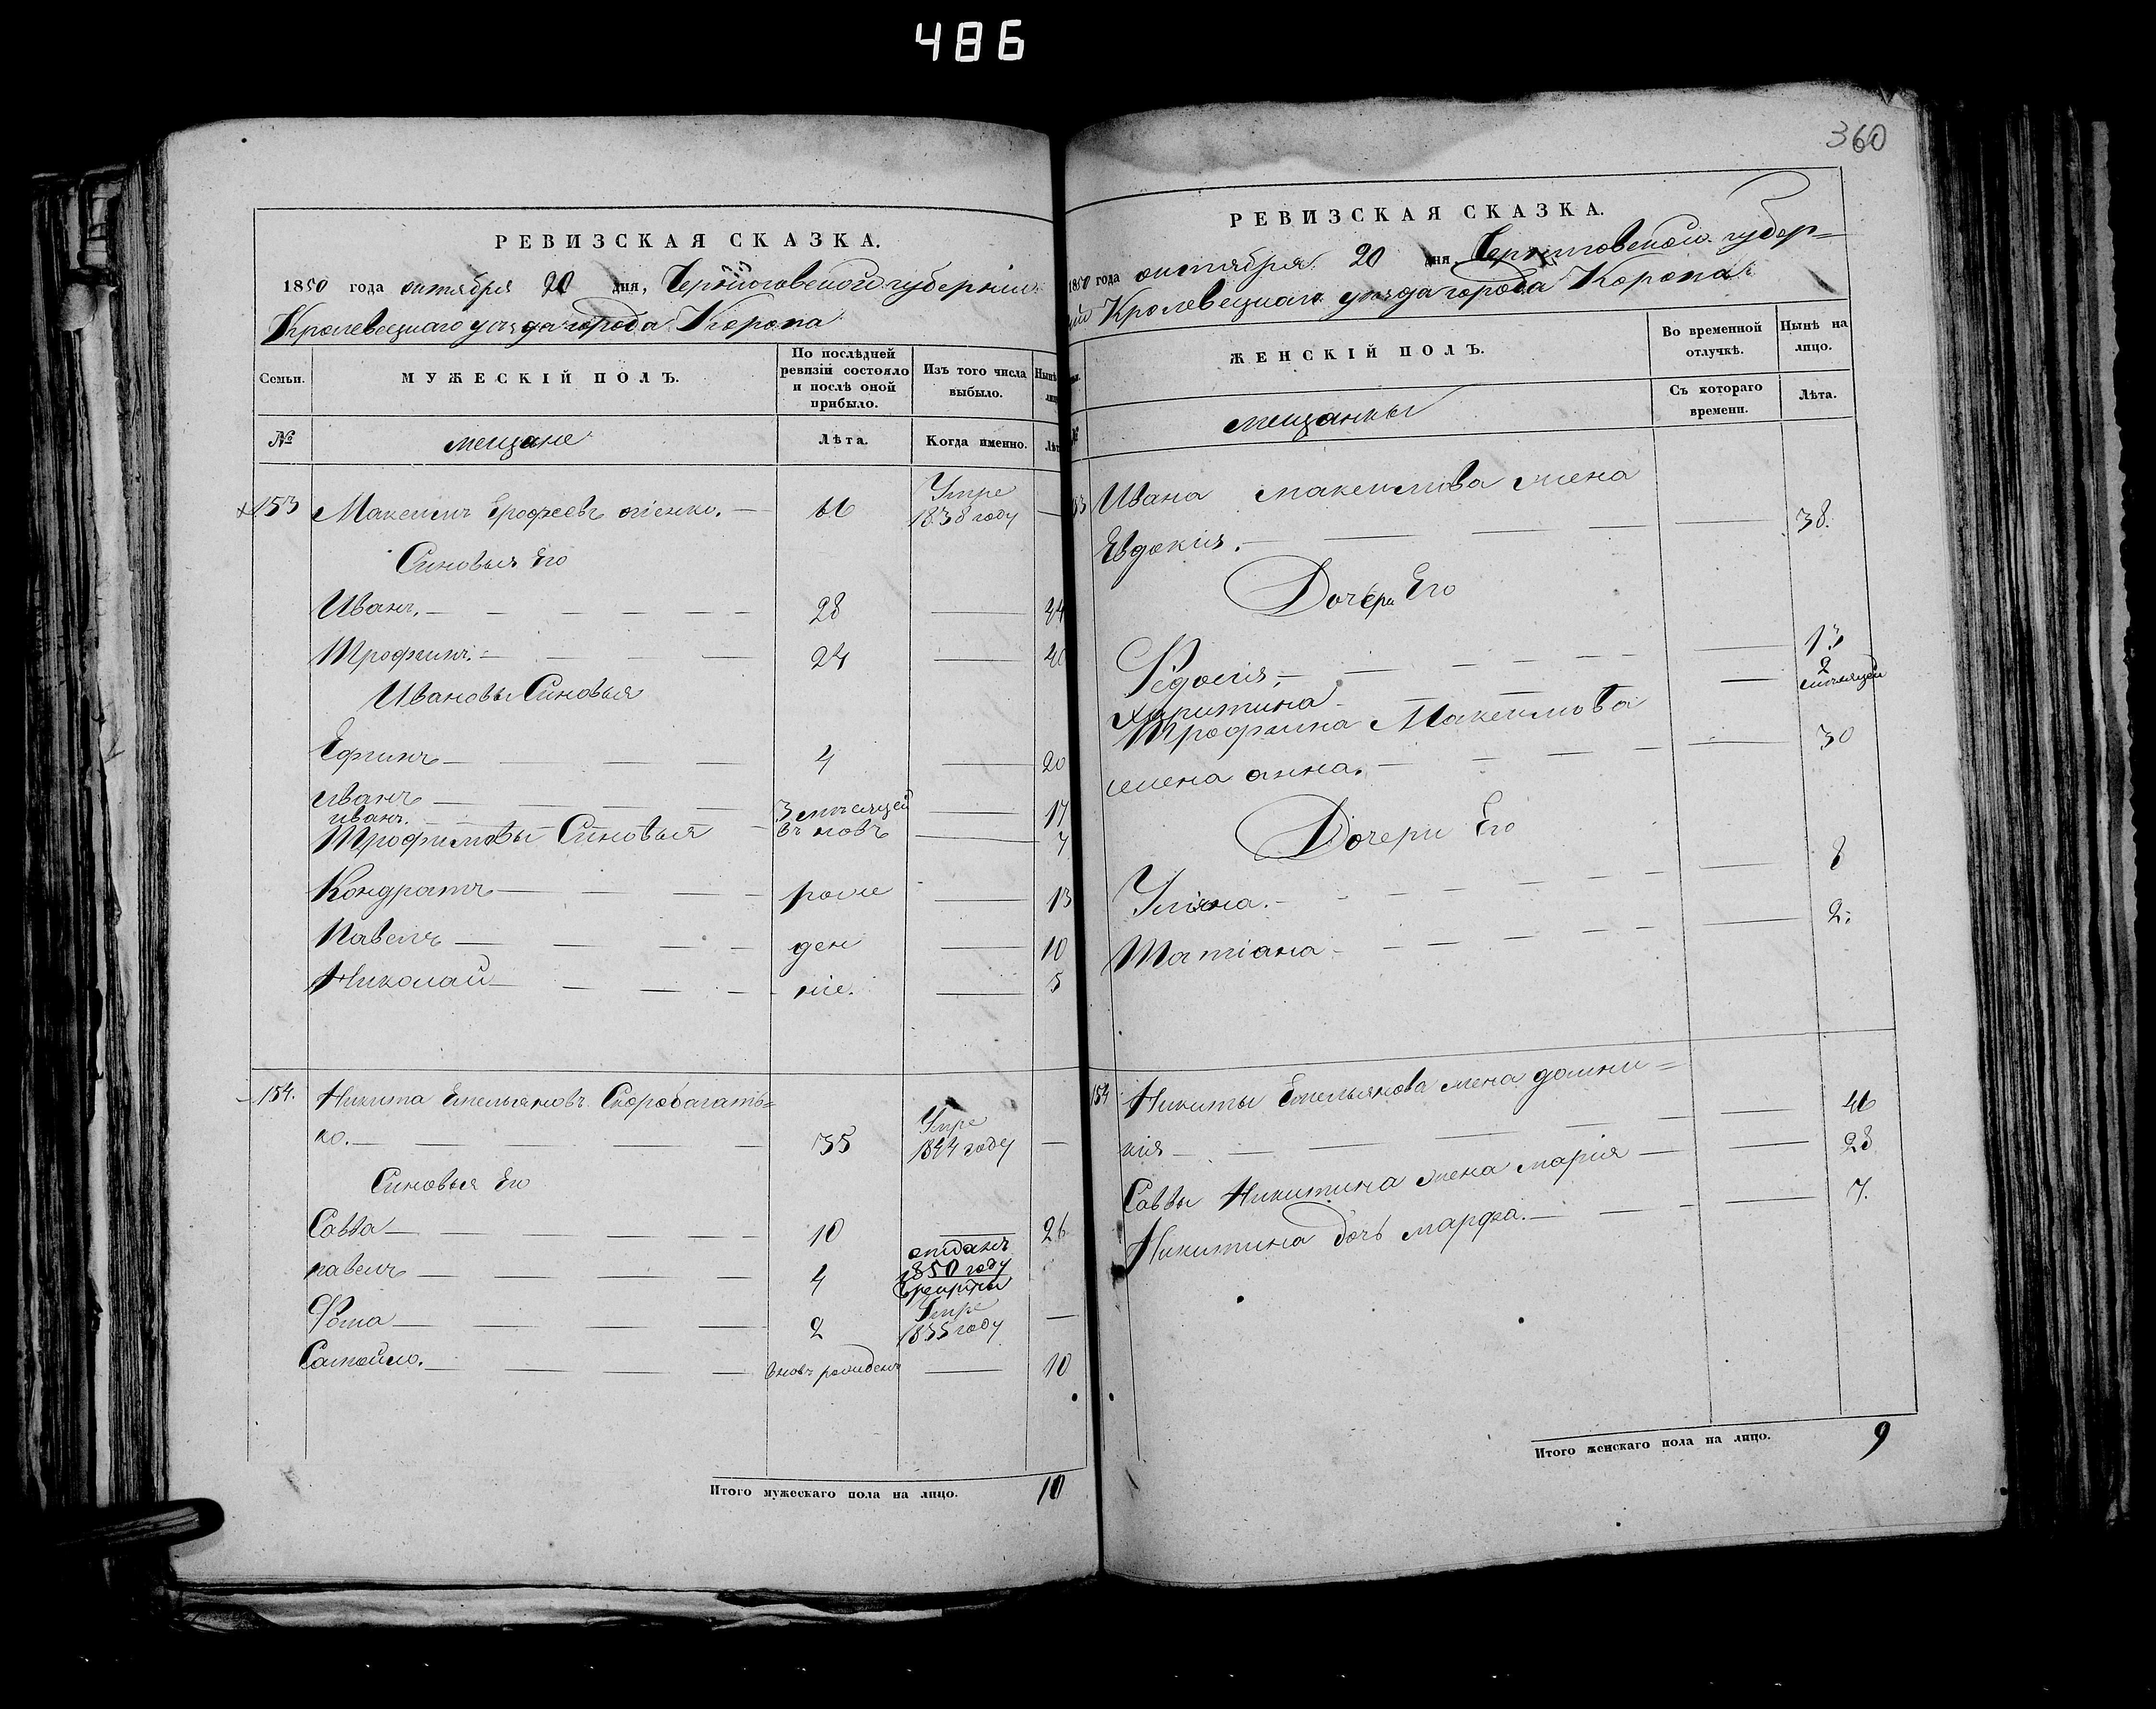 486
РЕВИЗСКАЯ СКАЗКА.
1850 года октября 20 дня, Черниговской губерніи
Кролевецкаго уѣзда города Коропа
Семьи.
МУЖЕСКІЙ ПОЛЪ.
По послѣдней ревизіи состояло и послѣ оной прибыло.
Изъ того числа выбыло.
Нынѣ
№
мещане
Лѣта.
Когда именно.
Лѣт
153 Максимъ Ерофеевъ 1838 году
Умре
Синовья Его
Иванъ. 28
Трофимъ. 24 40
Ивановы Синовья
Ефимъ 4 20
иванъ 3 17
иванъ. 7
Трофимовы Синовья въ новъ
Кондратъ рож 13
Павелъ ден 10
Николай ніе. 5
154. Никита Емельяновъ Скоробагать=
ко. 35 Умре 1844 году
Синовья Его
Савва 10 26
павелъ 4 отданъ 1850 году
Фома 2 Умре 1835 году
Самойло. вновъ рожденъ 10
Итого мужескаго пола на лицо. 10
360
РЕВИЗСКАЯ СКАЗКА.
1850 года октября 20 дня Черниговской губер=
ніи Кролевецкаго уѣзда города Коропа
ЖЕНСКІЙ ПОЛЪ.
Во временной отлучкѣ.
Нынѣ на лицо.
мещанки
Съ котораго времени.
Лѣта.
Ивана максимова жена
Евдокия. 38.
Дочери Его
Федосия, 13
Харитина 2
Трофима Максимова
жена анна. 30
Дочери Его
Уліяна. 8
Татіана 2.
154 Никиты Емельянова жена домни=
кия 46
Саввы Никитина жена марія 28
Никитина дочь марфа. 7.
Итого женскаго пола на лицо. 9